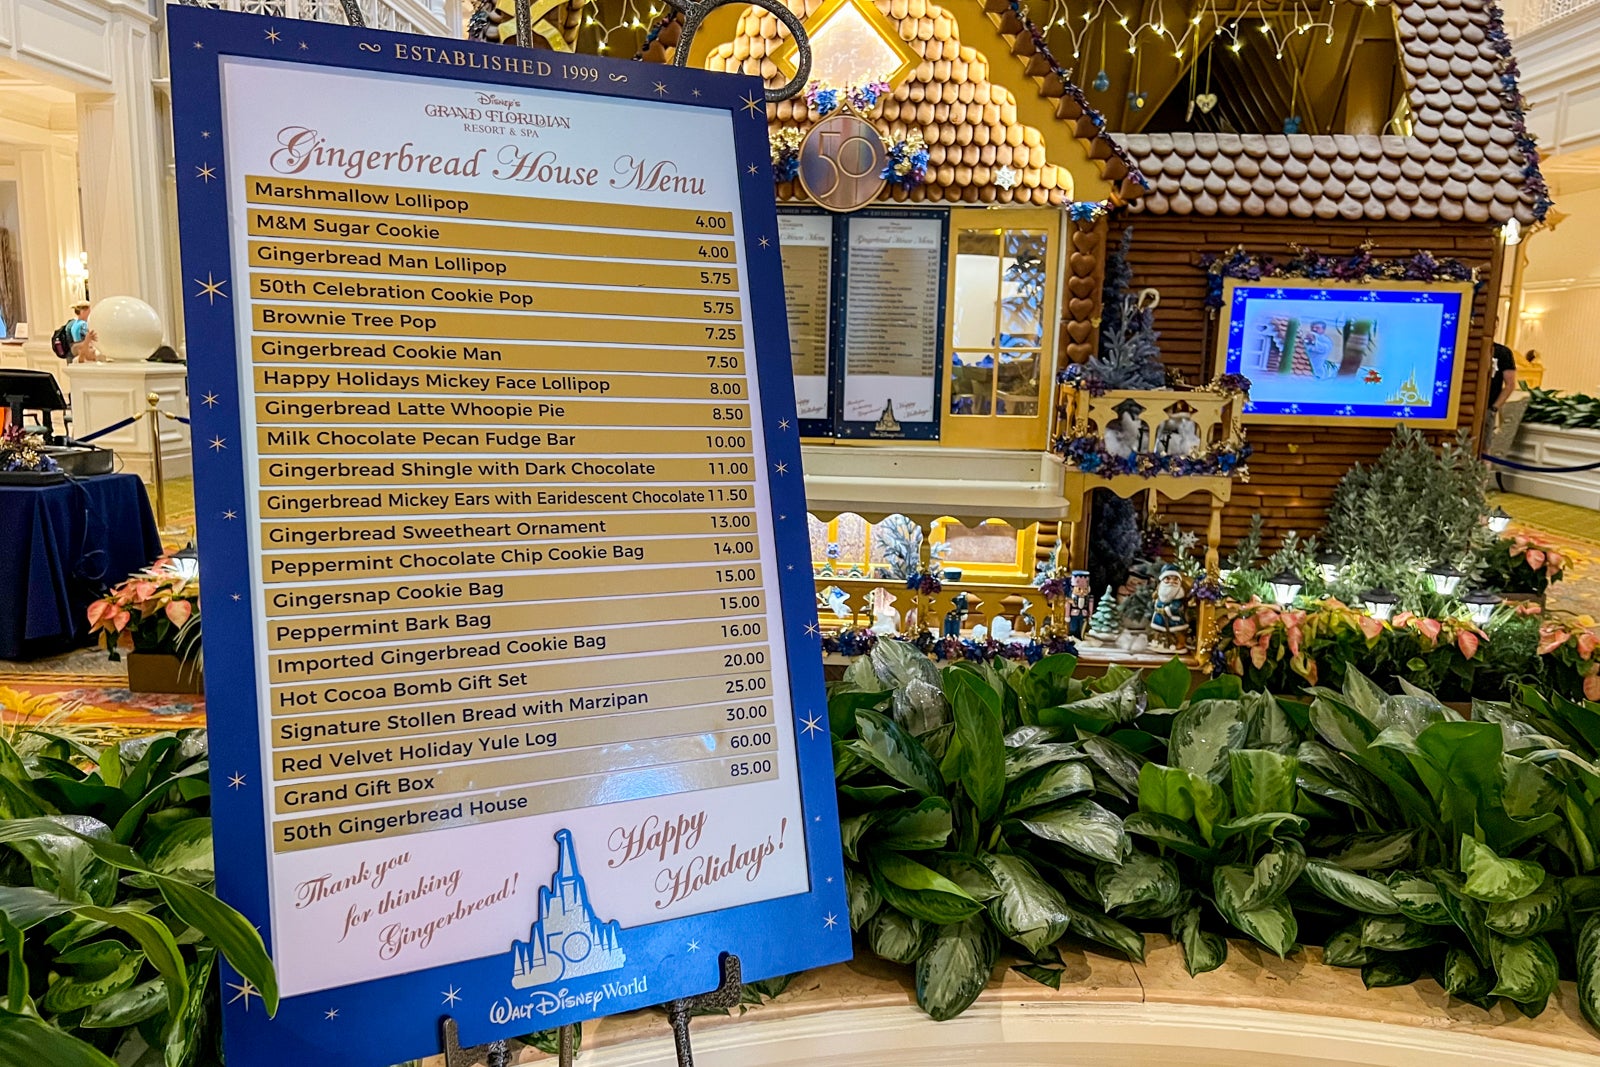 ESTABLISHED 1999
Disney's
GRAND FLORIDIAN
RESORT & SPA
Gingerbread House Menu
Marshmallow Lollipop 4.00
M&M Sugar Cookie 4.00
Gingerbread Man Lollipop 5.75
50th Celebration Cookie Pop 5.75
Brownie Tree Pop 7.25
Gingerbread Cookie Man 7.50
Happy Holidays Mickey Face Lollipop 8.00
Gingerbread Latte Whoopie Pie 8.50
Milk Chocolate Pecan Fudge Bar 10.00
Gingerbread Shingle with Dark Chocolate 11.00
Gingerbread Mickey Ears with Earidescent Chocolate 11.50
Gingerbread Sweetheart Ornament 13.00
Peppermint Chocolate Chip Cookie Bag 14.00
Gingersnap Cookie Bag 15.00
Peppermint Bark Bag 15.00
Imported Gingerbread Cookie Bag 16.00
Hot Cocoa Bomb Gift Set 20.00
Signature Stollen Bread with Marzipan 25.00
Red Velvet Holiday Yule Log 30.00
Grand Gift Box 60.00
50th Gingerbread House 85.00
Thank you
for thinking
Gingerbread!
Happy
Holidays!
50
WALT DISNEY World
50
ESTABLISHED 1999
House Menu
Gingerbread House Menu
50